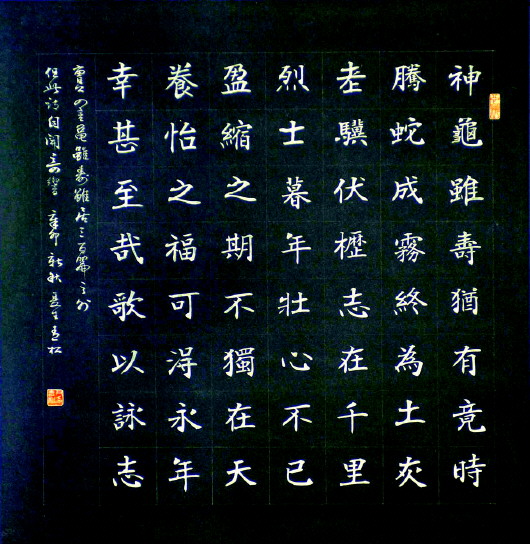 神龜雖壽猶有竟時
騰蛇成霧終為土灰
老驥伏櫪志在千里
烈士暮年壯心不已
盈縮之期不獨在天
養怡之福可淂永年
幸甚至哉歌以詠志
曹 龜雖壽雖 三百篇之外
但此詩自開奇響 辛卯新秋 青松